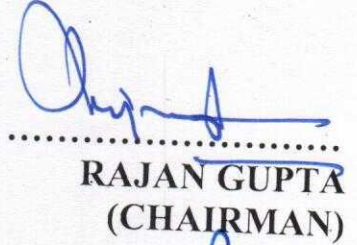 RAJAN GUPTA
(CHAIRMAN)